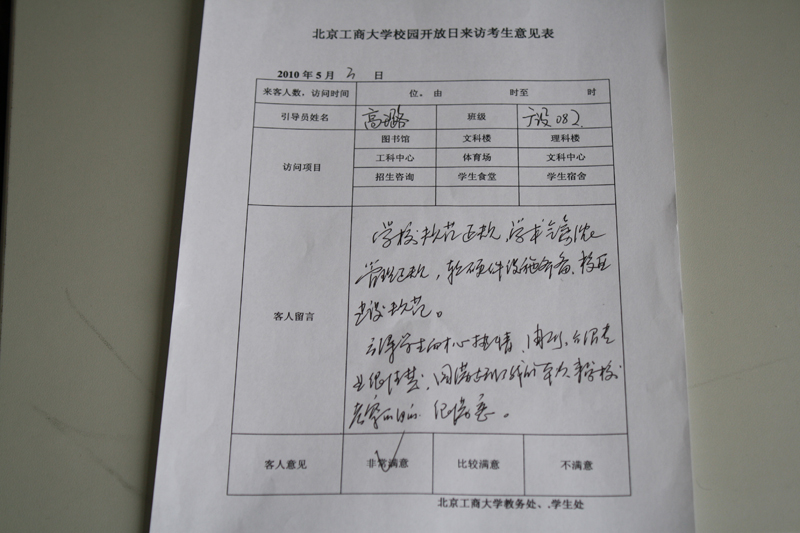 北京工商大学校园开放日来访考生意见表
2010 年 5 月 3 日
来客人数，访问时间 位。由 时至 时
引导员姓名 高璐 班级 广设082
访问项目
图书馆 文科楼 理科楼
工科中心 体育场 文科中心
招生咨询 学生食堂 学生宿舍
客人留言
学校规范正规，学术
管理正规，软硬件设施齐备、校区
建设规范。
学生 热情、周到，介绍专
业很清楚，圆满 学校
很满意。
客人意见 非常满意 比较满意 不满意
北京工商大学教务处、.学生处